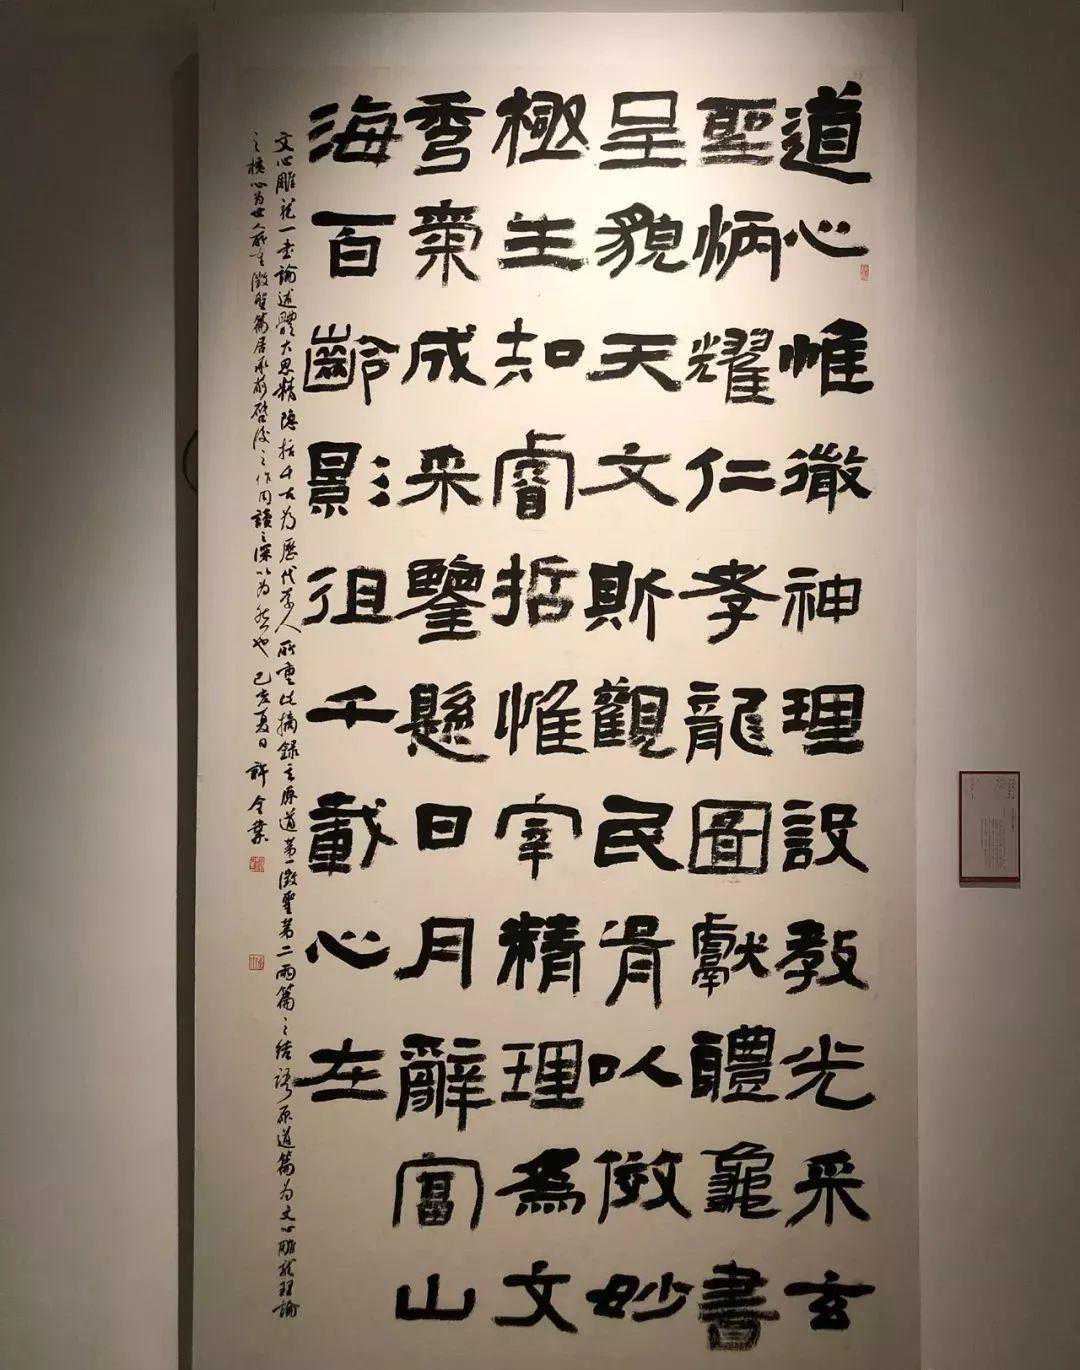 道心惟微神理設教光采玄
聖炳耀仁孝龍圖獻體龜書
呈貌天文斯觀民胥以傚妙
極生知睿哲惟宰精理為文
秀氣成采鑒懸日月辭富山
海百齡影徂千載心在
文心雕龍一書論述體大思精隱括千古為歷代學人所重此摘錄其原道第一徵聖第二兩篇之結語原道篇為文心雕龍理論
之核心為世人所重徵聖篇居承前啓後之作用讀之深以為然也 己亥夏日 許